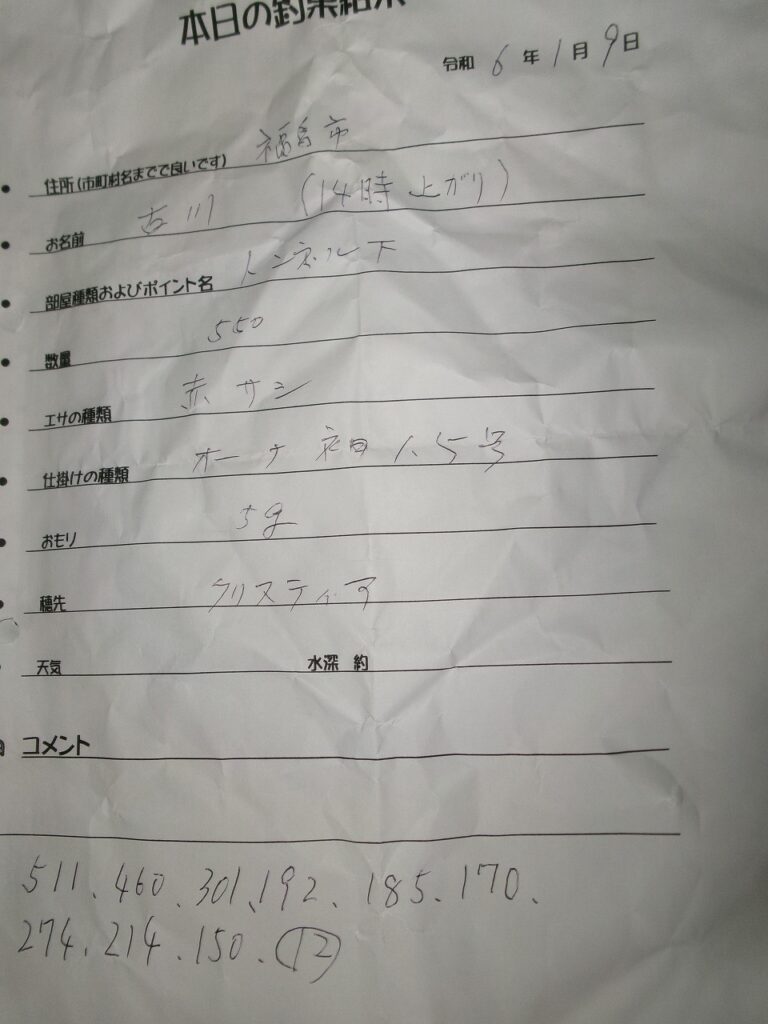 本日の釣果結果
令和 6 年 1 月 9 日
住所(市町村名までで良いです) 福島市
お名前 古川 (14時上がり)
部屋種類およびポイント名 トンネル下
数量 550
エサの種類 赤サシ
仕掛けの種類 オーナ 袖 1.5号
おもり 5g
穂先 クリスティア
天気 水深 約
コメント
511. 460. 301. 192. 185. 170.
274. 214. 150. 12